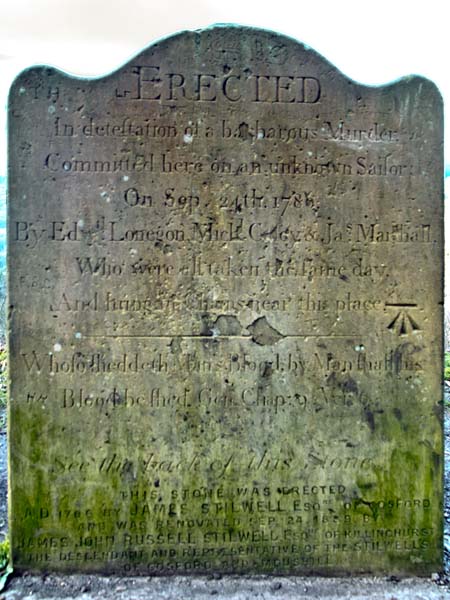 ERECTED
In detestation of a barbarous Murder,
Committed here on an unknown Sailor
On Sep. 24th. 1786,
By Edwd. Lonegon, Mich. Casey & Jas. Marshall,
Who were all taken the same day,
And hung in Chains near this place.
Whoso sheddeth Man's Blood by Man shall his
Blood be shed. Gen. Chap: 9 Ver. 6
See the back of this Stone
THIS STONE WAS ERECTED
A.D. 1786 BY JAMES STILWELL ESQR. OF COSFORD
AND WAS RENOVATED SEP. 24 1889 BY
JAMES JOHN RUSSELL STILWELL ESQR. OF KILLINGHURST
THE DESCENDANT AND REPRESENTATIVE OF THE STILWELLS
OF COSFORD AND